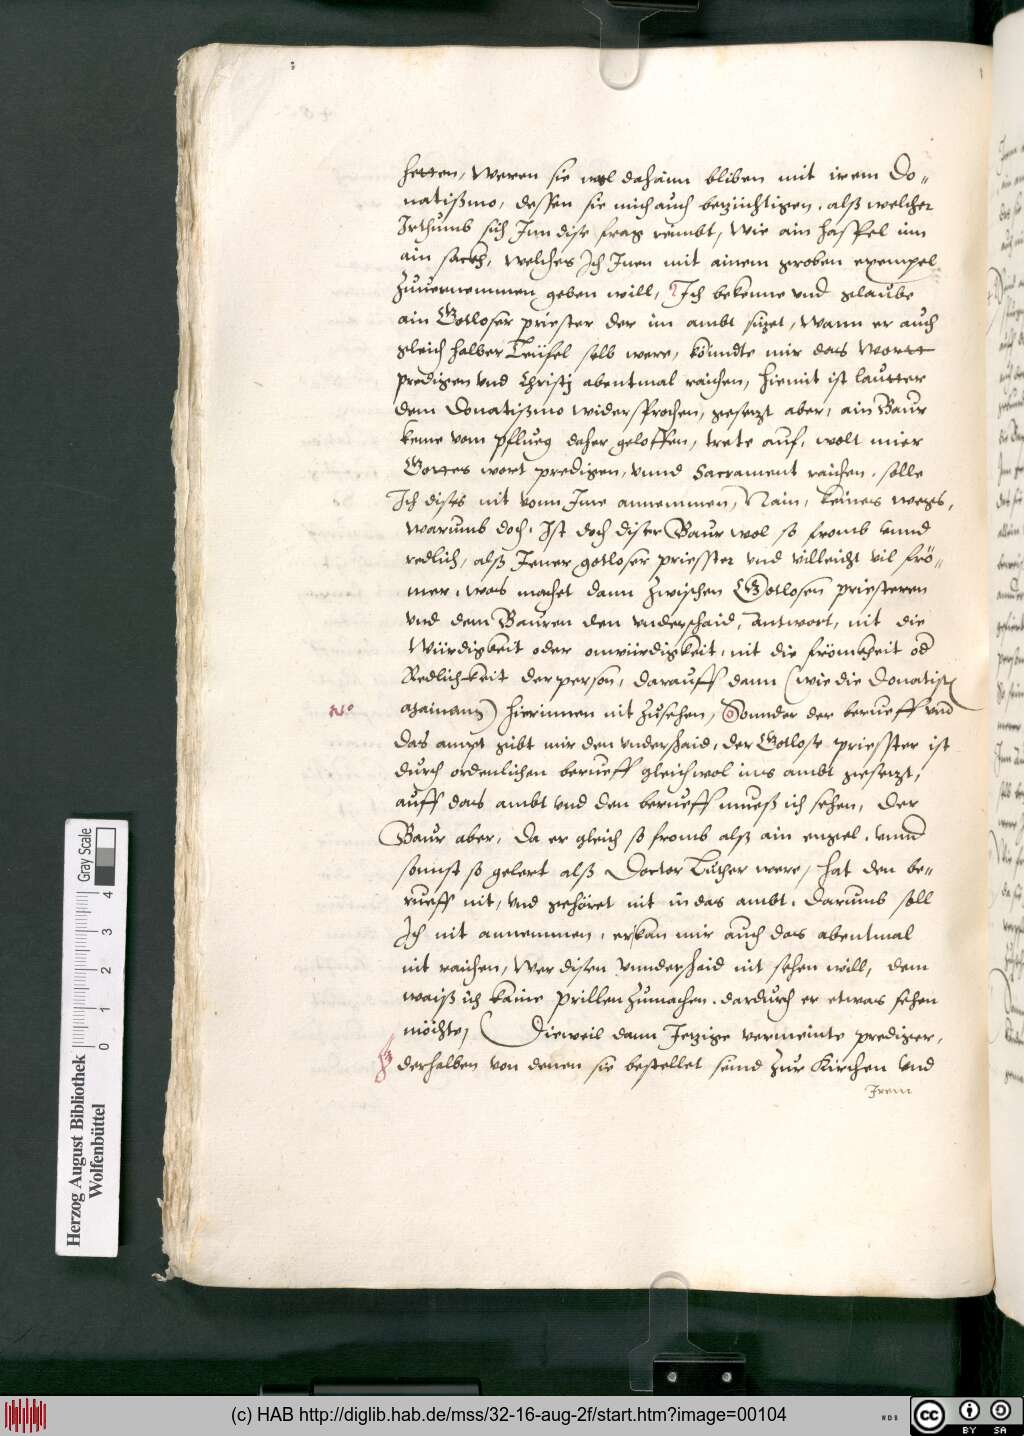 hetten, weren sie wol dahäim bliben mit irem Do=
natißmo, dessen sie mich auch bezüchtigen. alß welcher
Irthumb sich Inn dise frag reimbt, wie ain haspel inn
ain sackh, welches Ich Inen mit ainem groben exempel
zuuernemmen geben will, Ich bekenne vnd glaube
ain Gotloser priester der im ambt sizet, wann er auch
gleich halber Teüfel selb were, köndte mir das wortt
predigen vnd Christj abentmal raichen, hiemit ist lautter
dem Donatißmo widersprochen, gesetzt aber, ain Baur
keme vom pflueg daher geloffen, trete auf, wolt mier
Gottes wort predigen, vnnd Sacrament raichen. solle
Ich dises nit vonn Ime annemmen, Nain, keines wegs,
warumb doch. Ist doch diser Baur wol so fromb vnnd
redlich, alß Jener gotloser priesster vnd villeicht vil frö=
mer. was machet dann zwischen Gotlosen priesteren
vnd dem Bauren den vnderschaid, Antwort, nit die
Würdigkeit oder onwürdigkeit, nit die frömkheit od
Redlichkeit der person, darauff dann (wie die Donatist
) hierinnen nit zusehen, Sonnder der berueff vnd
das ampt gibt mir den vnderschaid, der Gotlose priesster ist
durch ordenlichen berueff gleichwol ins ambt gesetzt,
auff das ambt vnd den berueff mueß ich sehen, Der
Baur aber, da er gleich so fromb alß ain engel. vnnd
sonnst so gelert alß Doctor Luther were, hat den be=
rueff nit, vnd gehöret nit in das ambt. darumb soll
Ich nit annemmen. er kan mir auch das abentmal
nit raichen, wer disen vnnderschaid nit sehen will, dem
waiß ich kaine prillen zumachen. dardurch er etwas sehen
möchte, Dieweil dann Jetzige vermeinte prediger,
derhalben von denen sie bestellet seind zur Kirchen vnd
Irem
Herzog August Bibliothek
Wolfenbüttel
0 1 2 3 4
Gray Scale
(c) HAB http://diglib.hab.de/mss/32-16-aug-2f/start.htm?image=00104
WDB
cc BY SA